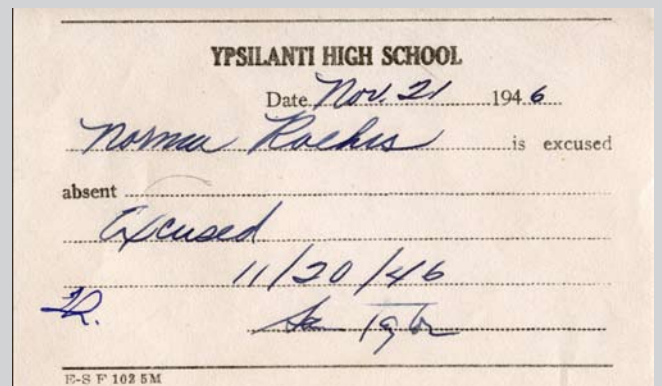 YPSILANTI HIGH SCHOOL
Date Nov. 21 1946
Norma is excused
absent
Excused
11/20/46
E-S F 102 5M